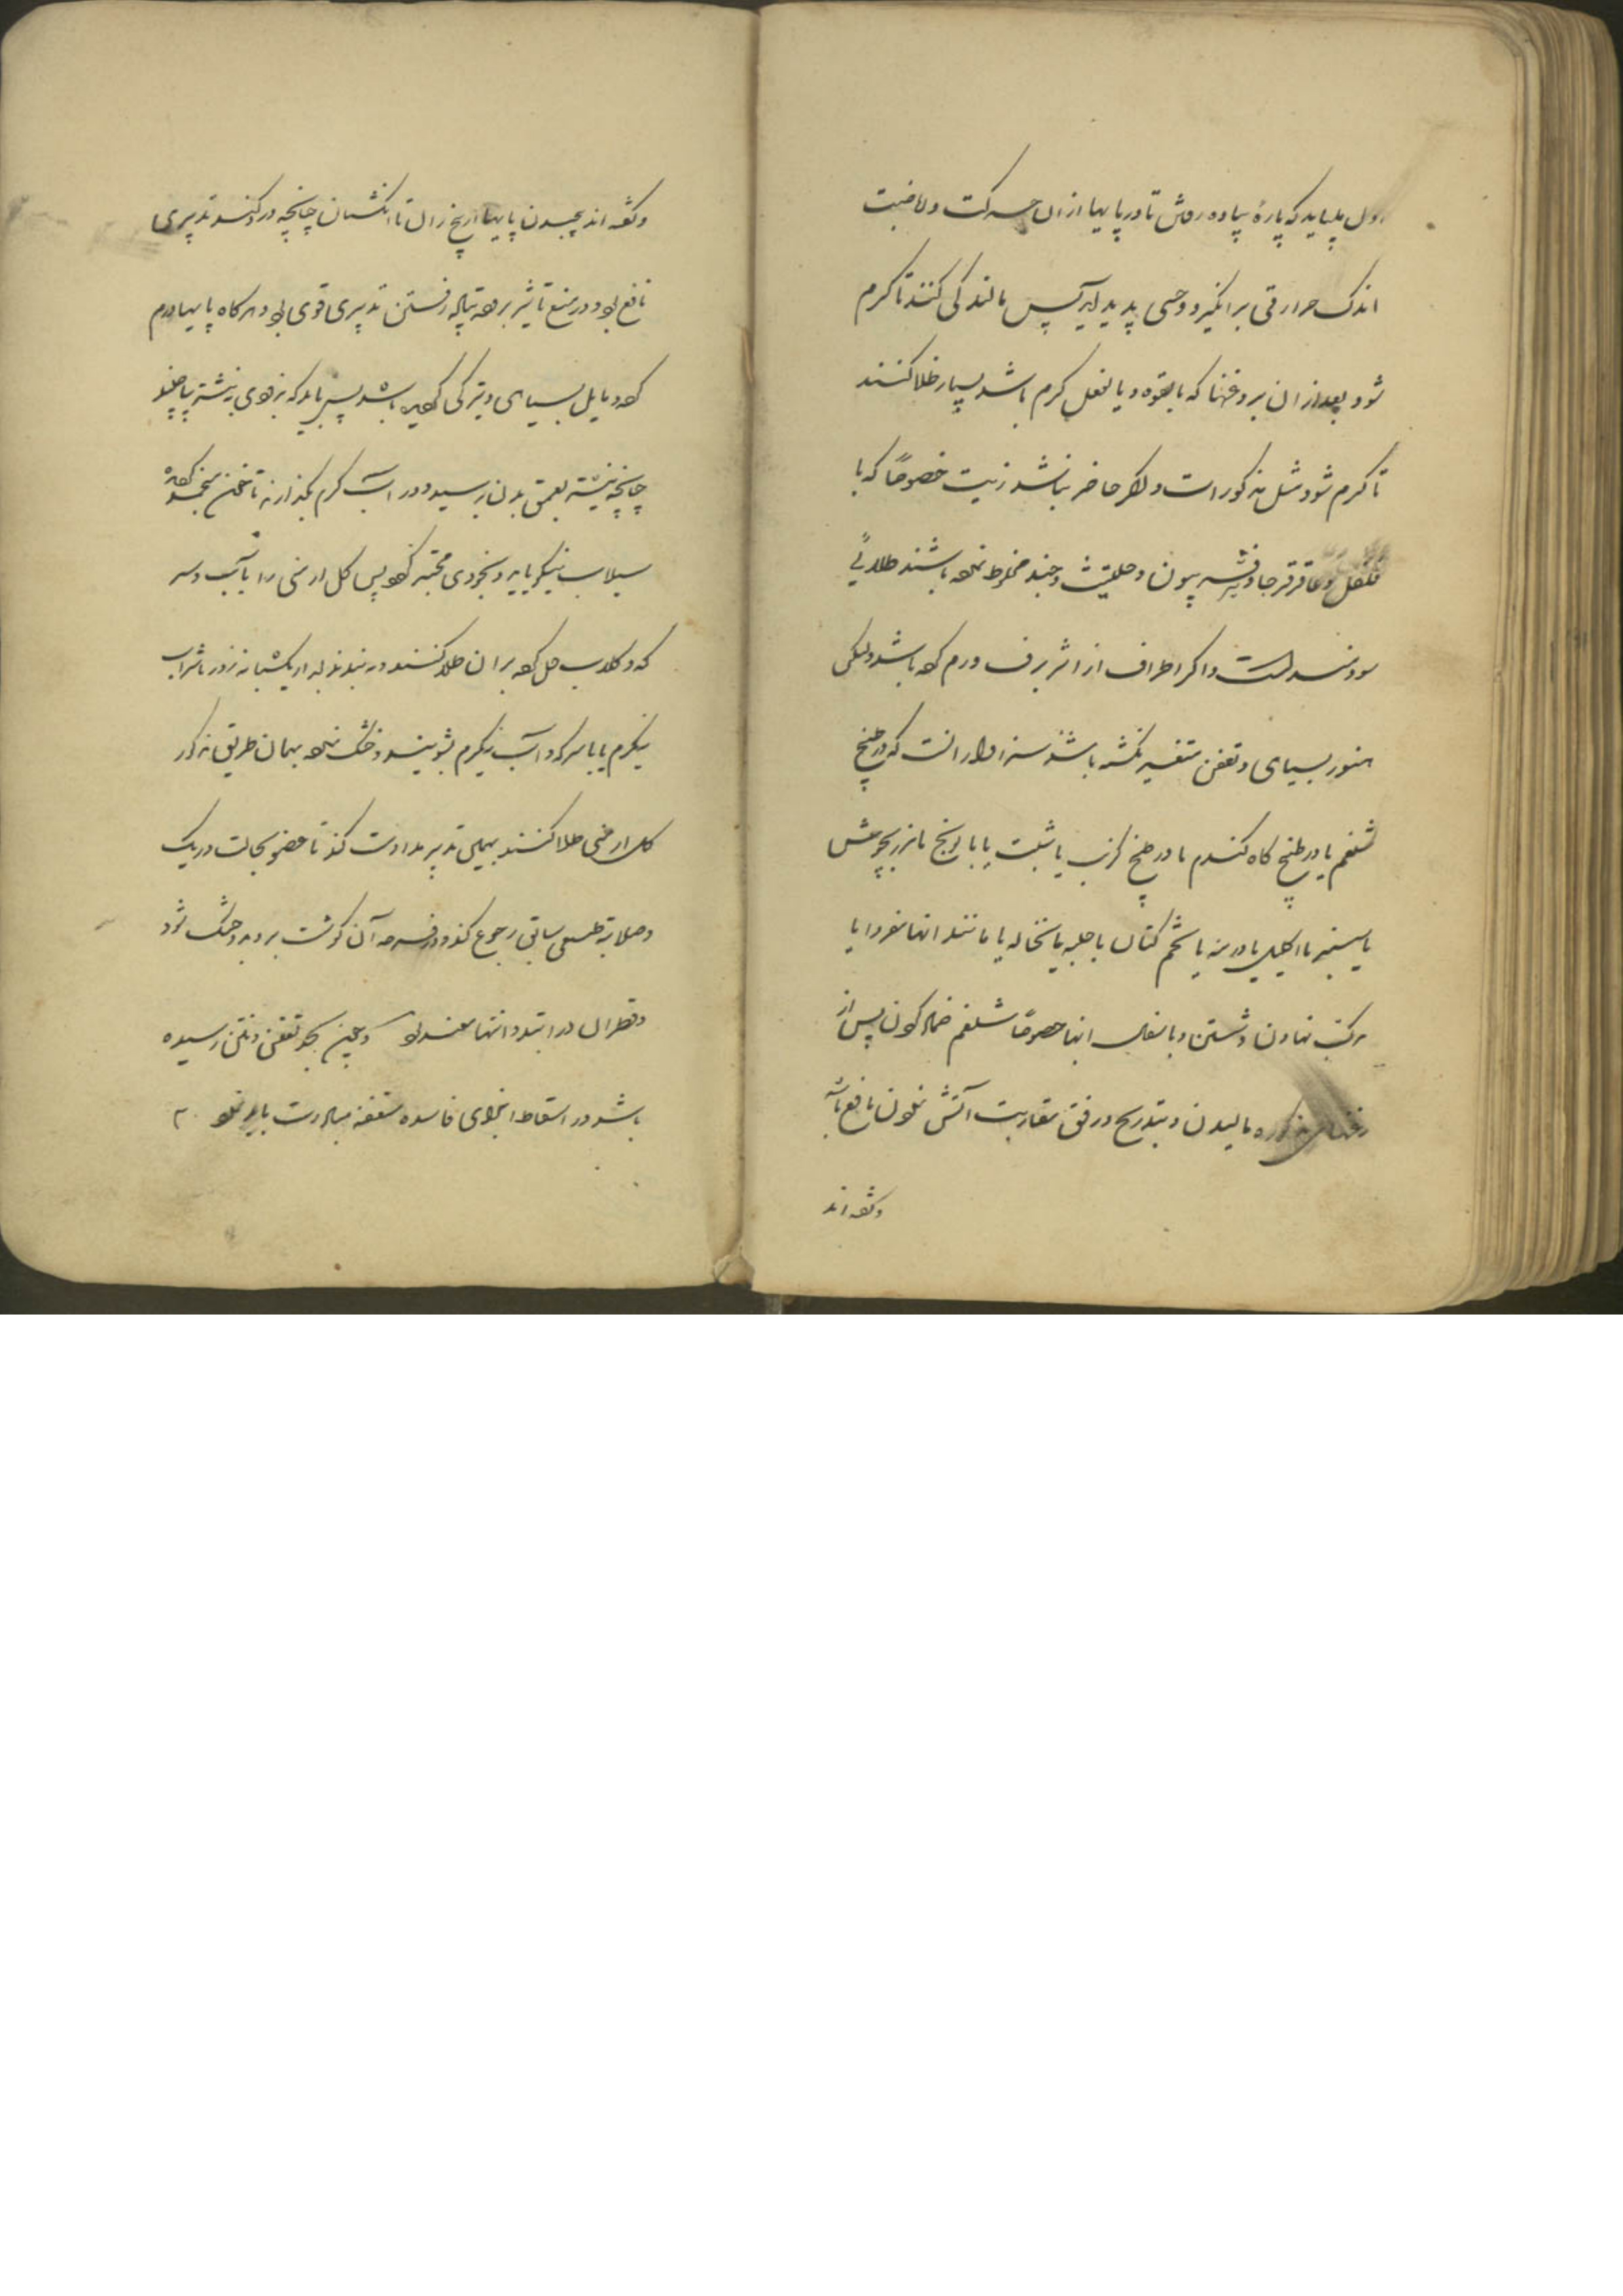 اول بباید که پارهٔ پیاده رفتن تا در پایها ازان حرکت و ریاضت
اندک حرارتی برانگیزد و حسی پدید آید پس مالندکی کنند تا کرم
شود و بعد ازان بروغنها که بالقوه و یا بالفعل کرم باشد بسیار طلا کنند
تا کرم شود و مثل مذکور است و اکر حاضر نباشد زیت خصوصا که با
فلفل و عاقرقرحا و فرفیون و حلتیت و جند مخلوط نموده باشند طلائی
سودمند است و اکر اطراف از اثر برف ورم کرده باشد ولیکن
هنوز بسیاهی و تعفن متغیر نکشته باشد سزاوار آنست که در طبیخ
شلغم یا در طبیخ کاه کندم یا در طبیخ کرنب یا شبت یا بابونج یا مرزنجوش
یا سیسنبر یا اکلیل یا درمنه یا تخم کتان یا حلبه یا نخاله یا مانند انها مفردا یا
مرکب نهادن و شستن و با ثفل انها خصوصا شلغم ضماد کردن پس از
روغنهای مذکوره مالیدن و بتدریج و رفق بمقاربت آتش نمودن نافع باشد
وکفته اند
وکفته اند پیچیدن پایها از بیخ ران تا انکشتان چنانچه در کنند تدبیری
نافع بود و در منع تاثیر برف تپاله رفتن تدبیری قوی بود و هرکاه پایها ورم
کرده و مایل بسیاهی و تیرکی کردیده باشد پس باید که بزودی نیشتر بپا چند
چنانچه نیشتر بعمق بدن رسید و در آب کرم بکذارند تا خون منجمد کشته
سیلاب نیکو یابد و بخودی محتبس نکردد پس کل ارمنی را با آب و سرکه
که و کلاب حل کرده بران طلا کنند و به بندند بعد از یکشبانه روز با شراب
نیکرم یا با سرکه و آب نیکرم بشویند و خشک نموده بهمان طریق مذکور
کل ارمنی طلا کنند بهمین تدبیر مداومت کند تا عضو بحالت و رنک
و صلابة طبیعی سابق رجوع کند و در قرحه آن کوشت بروید و خشک شود
و قطران در ابتدا و انتها سودمند بود و چنین بحد تعفن و نتن رسیده
باشد در اسقاط اجزای فاسده متعفنه مبادرت باید نمود